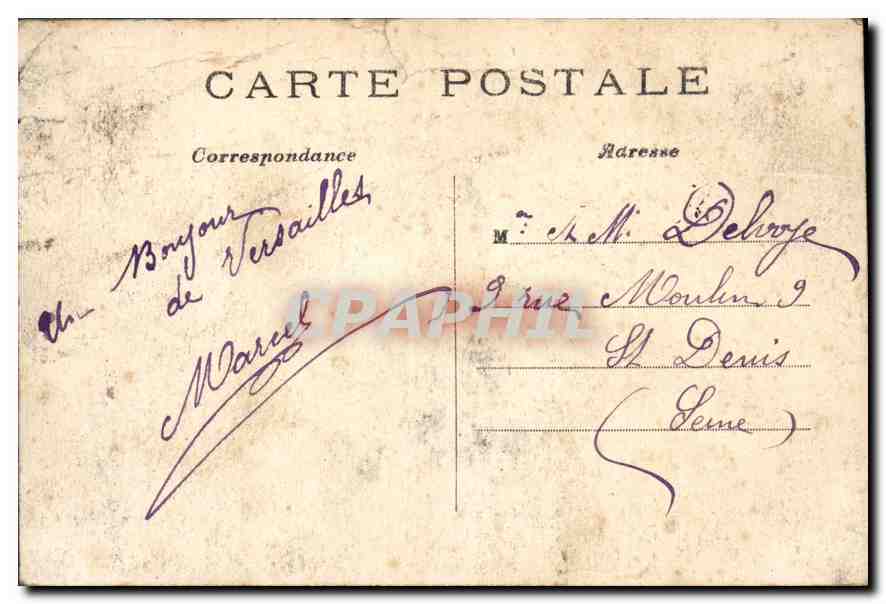 CARTE POSTALE
Correspondance
Adresse
Un Bonjour
de Versailles
Marcel
Mr: et M. Delvoye
9 rue Moulin 9
St Denis
(Seine)
CPAPHIL